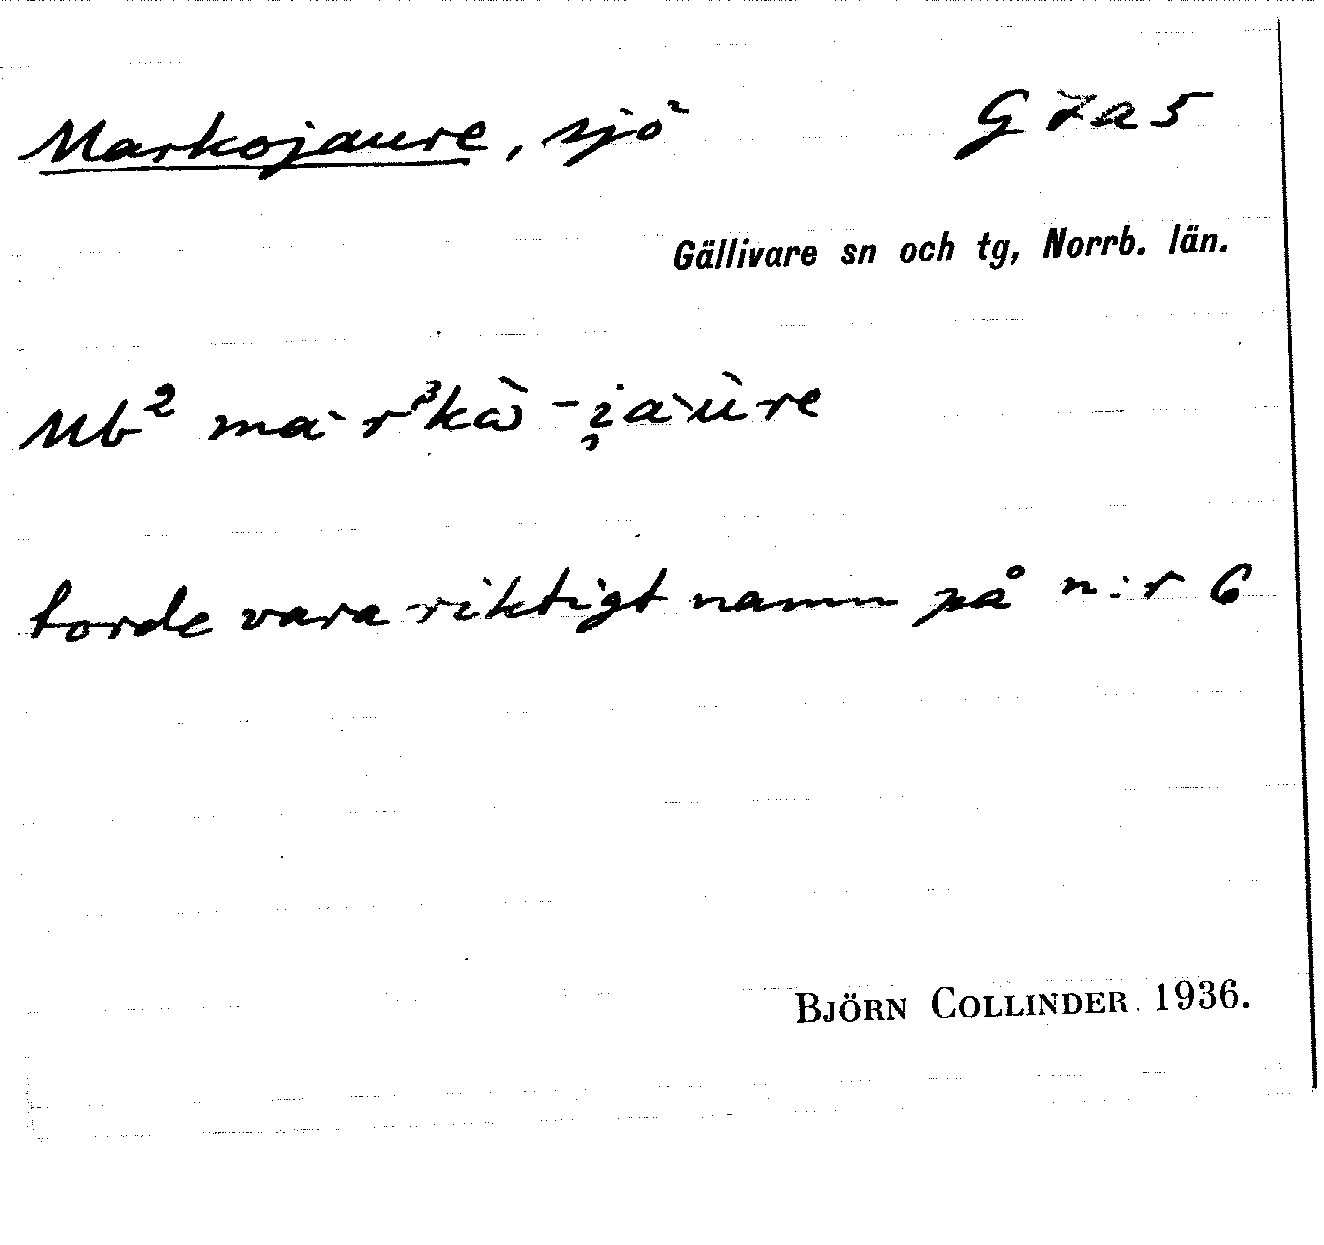 Markojaure, sjö G 7a5
Gällivare sn och tg, Norrb. län.
Mb² ma`r³kà̭ -i̯a`ùre
torde vara riktigt namn på n:r 6
BJÖRN COLLINDER. 1936.